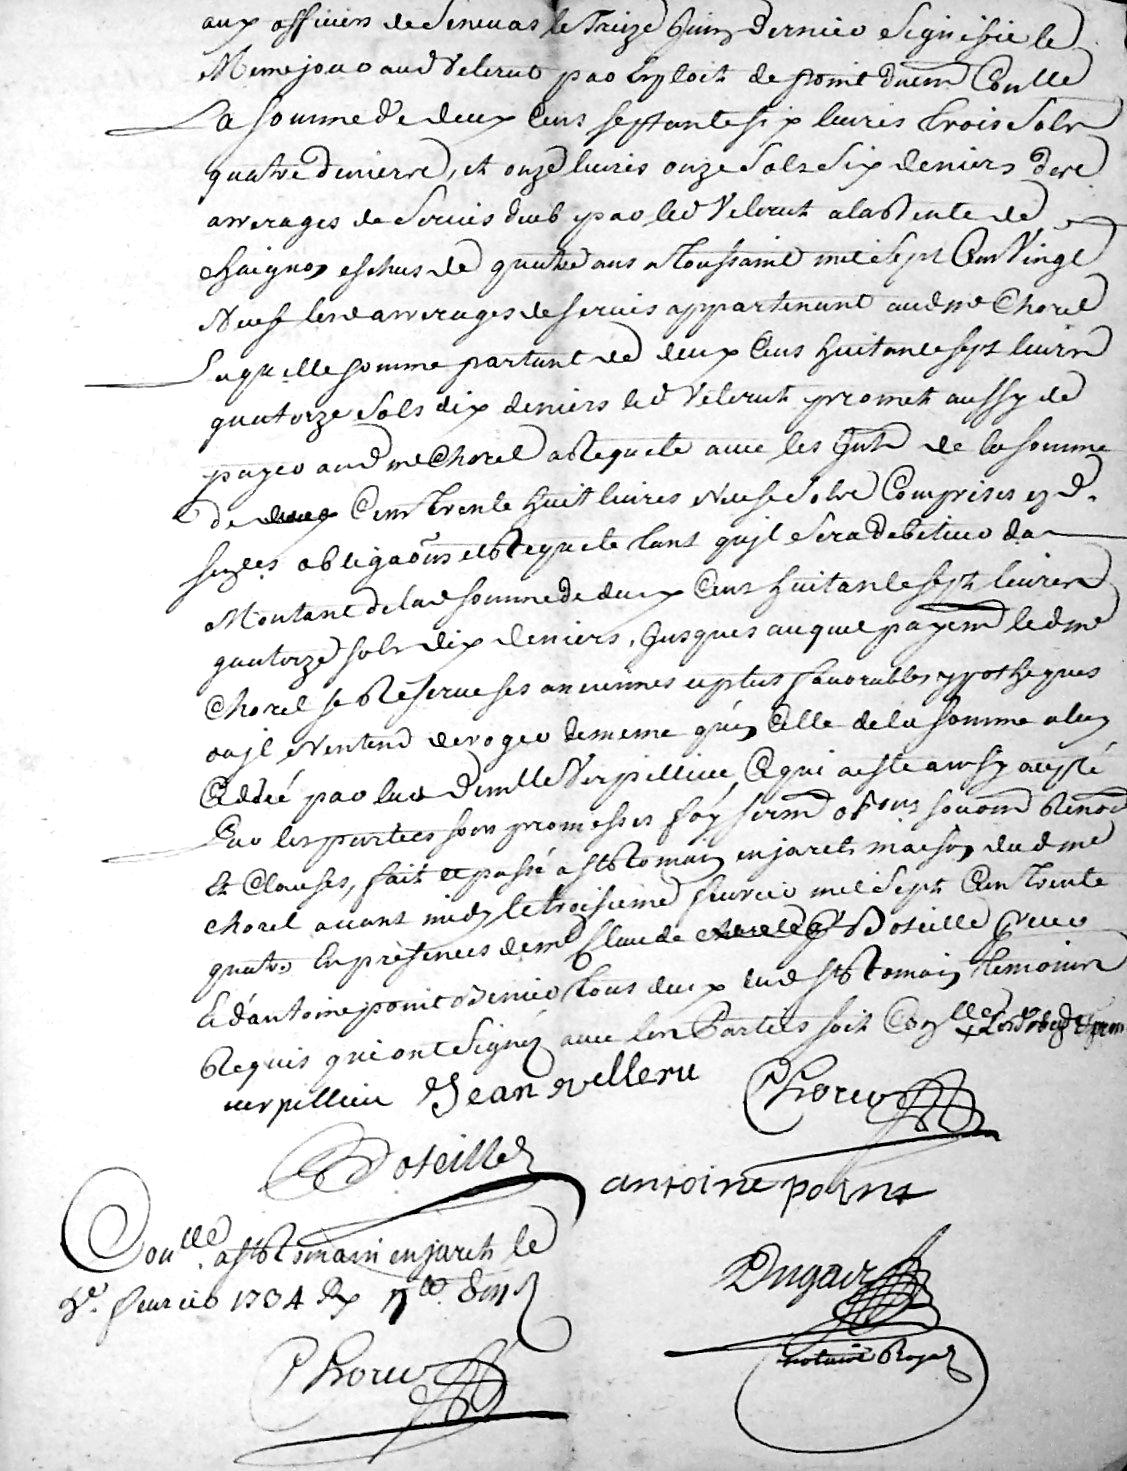 aux officiers de Senevas le Treize Juin dernier Signifié le
Meme jour aud Velerut par Exploit de point duem Conllé
La somme de deux Cens septante six livres trois Sols
quatre deniers, et onze livres onze Sols Six deniers des
arrerages de Servis deub par led Velerut a la Rente de
Chaignon eschus de quatre ans a Toussaint mil Sept Cens Vingt
Neuf lesd arrerages de servis appartenant aud me Chorel
Laquelle somme partant de deux Cens huitante sept livres
quatorze Sols dix deniers led Velerut promet aussy de
payer aud me Chorel a Requete avec les Jnts de la somme
de Cent Trente huit livres Neuf Sols Comprises
obligaons et Requete tant qu'jl Sera debiteur du
Montant de lad somme de deux Cens huitante sept livres
quatorze sols dix deniers, Jusques auquel payemt led me
Chorel se Reserve ses anciennes et plus favorables ypotheques
ou jl N'entend deroger de meme qu'en Celle de la somme a luy
Cedée par lad Demlle Verpillieu, Ce qui a esté aussy accepté
Par les parties sous promesses foy serm obons soumon Renon
Et Clauses, fait et passé a St Romain en jarets maison dud me
Chorel avant midy le troisieme fevrier mil Sept Cens Trente
quatre En presences de me Claude Roteille Greer
Et d'antoine point tous deux dud St Romain temoins
Requis qui ont Signé avec les Parties soit Conllé
verpillieu Jean velleru Chorel
CRoteille
antoine point
Conllé a St Romain en jarets le
fevrier 1734 Rx
Dugair
notaire Royal
Chorel